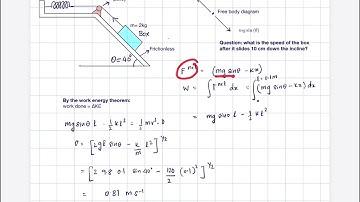 Free body diagram
m= 2kg
Box
mg sin(θ)
Frictionless
θ=40°
Question: what is the speed of the box
after it slides 10 cm down the incline?
F net = (mg sinθ - kx)
W = ∫ F net dx = ∫ (mg sinθ - kx) dx
l=0.1m
0
= mg sinθ l - ½ kl²
By the work energy theorem:
work done = ΔKE
mg sinθ l - ½ kl² = ½ mv² - 0
v = [2gl sinθ - k/m l²]^½
= [2 9.8 0.1 sin40° - 120/2 (0.1)²]^½
= 0.81 m s⁻¹